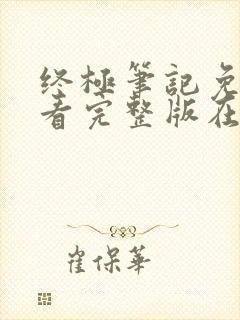 终極筆記免
看完整版在
崔保華